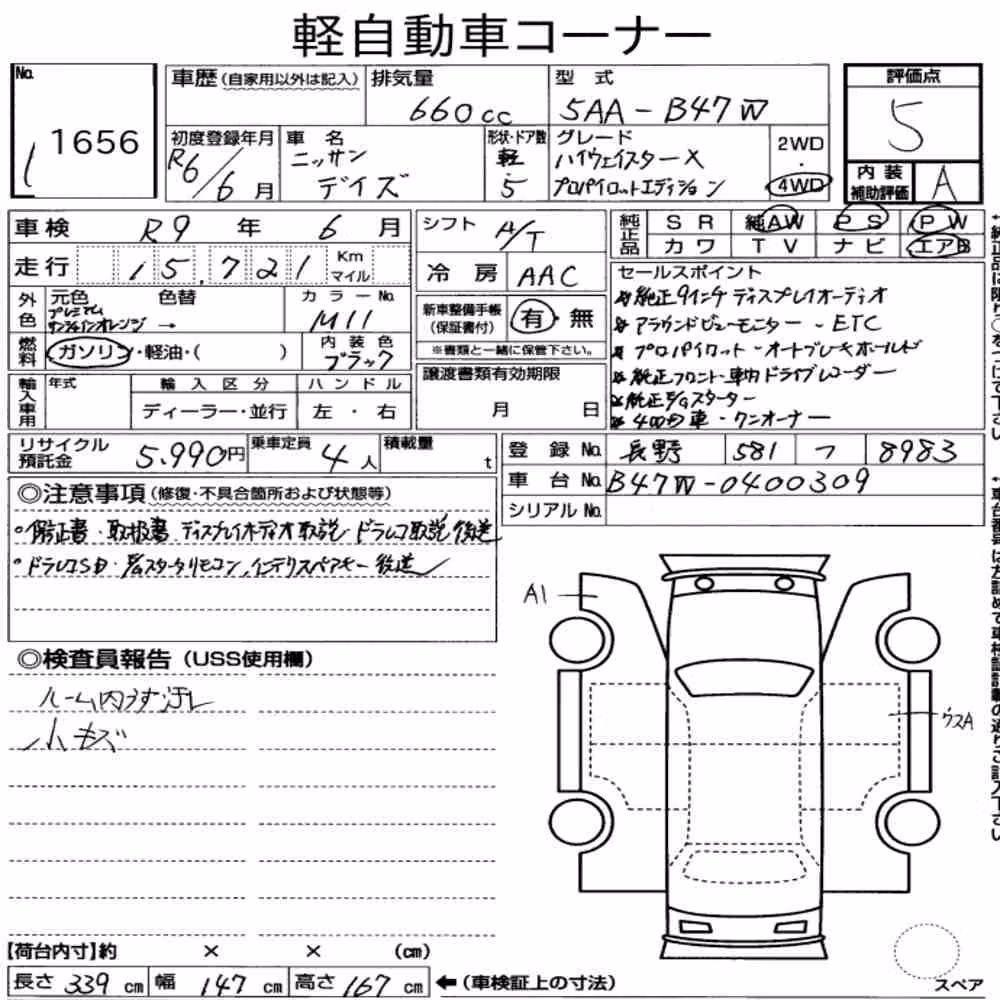 軽自動車コーナー
No. 1 1656
車歴(自家用以外は記入) 排気量 660cc 型式 5AA-B47W
初度登録年月 R6/6月 車名 ニッサン デイズ 形状・ドア数 軽 5 グレード ハイウェイスターX プロパイロットエディション 2WD・4WD
評価点 5
内装補助評価 A
車検 R9年 6月
走行 15,721 Km マイル
外色 元色 プレミアム サンシャインオレンジ → 色替 カラーNo. M11
燃料 ガソリン・軽油・( ) 内装色 ブラック
輸入車用 年式 輸入区分 ディーラー・並行 ハンドル 左・右
シフト A/T
冷房 AAC
新車整備手帳(保証書付) 有・無
※書類と一緒に保管下さい。
譲渡書類有効期限 月 日
純正品 SR 純AW PS PW
カワ TV ナビ エアB
セールスポイント
*純正9インチディスプレイオーディオ
*アラウンドビューモニター・ETC
*プロパイロット・オートブレーキホールド
*純正フロント・車内ドライブレコーダー
*純正E/Gスターター
*400台車・ワンオーナー
リサイクル預託金 5,990円 乗車定員 4人 積載量 t
登録No. 長野 581 フ 8983
車台No. B47W-0400309
シリアルNo.
◎注意事項(修復・不具合箇所および状態等)
○保証書・取扱書.ディスプレイオーディオ取説/ドラレコ取説 後送
○ドラレコSD・E/Gスターターリモコン,インテリスペアキー後送
◎検査員報告(USS使用欄)
ルーム内うす汚レ
小キズ
A1
ウスA
【荷台内寸】約 × × (cm)
長さ 339 cm 幅 147 cm 高さ 167 cm ←(車検証上の寸法)
スペア